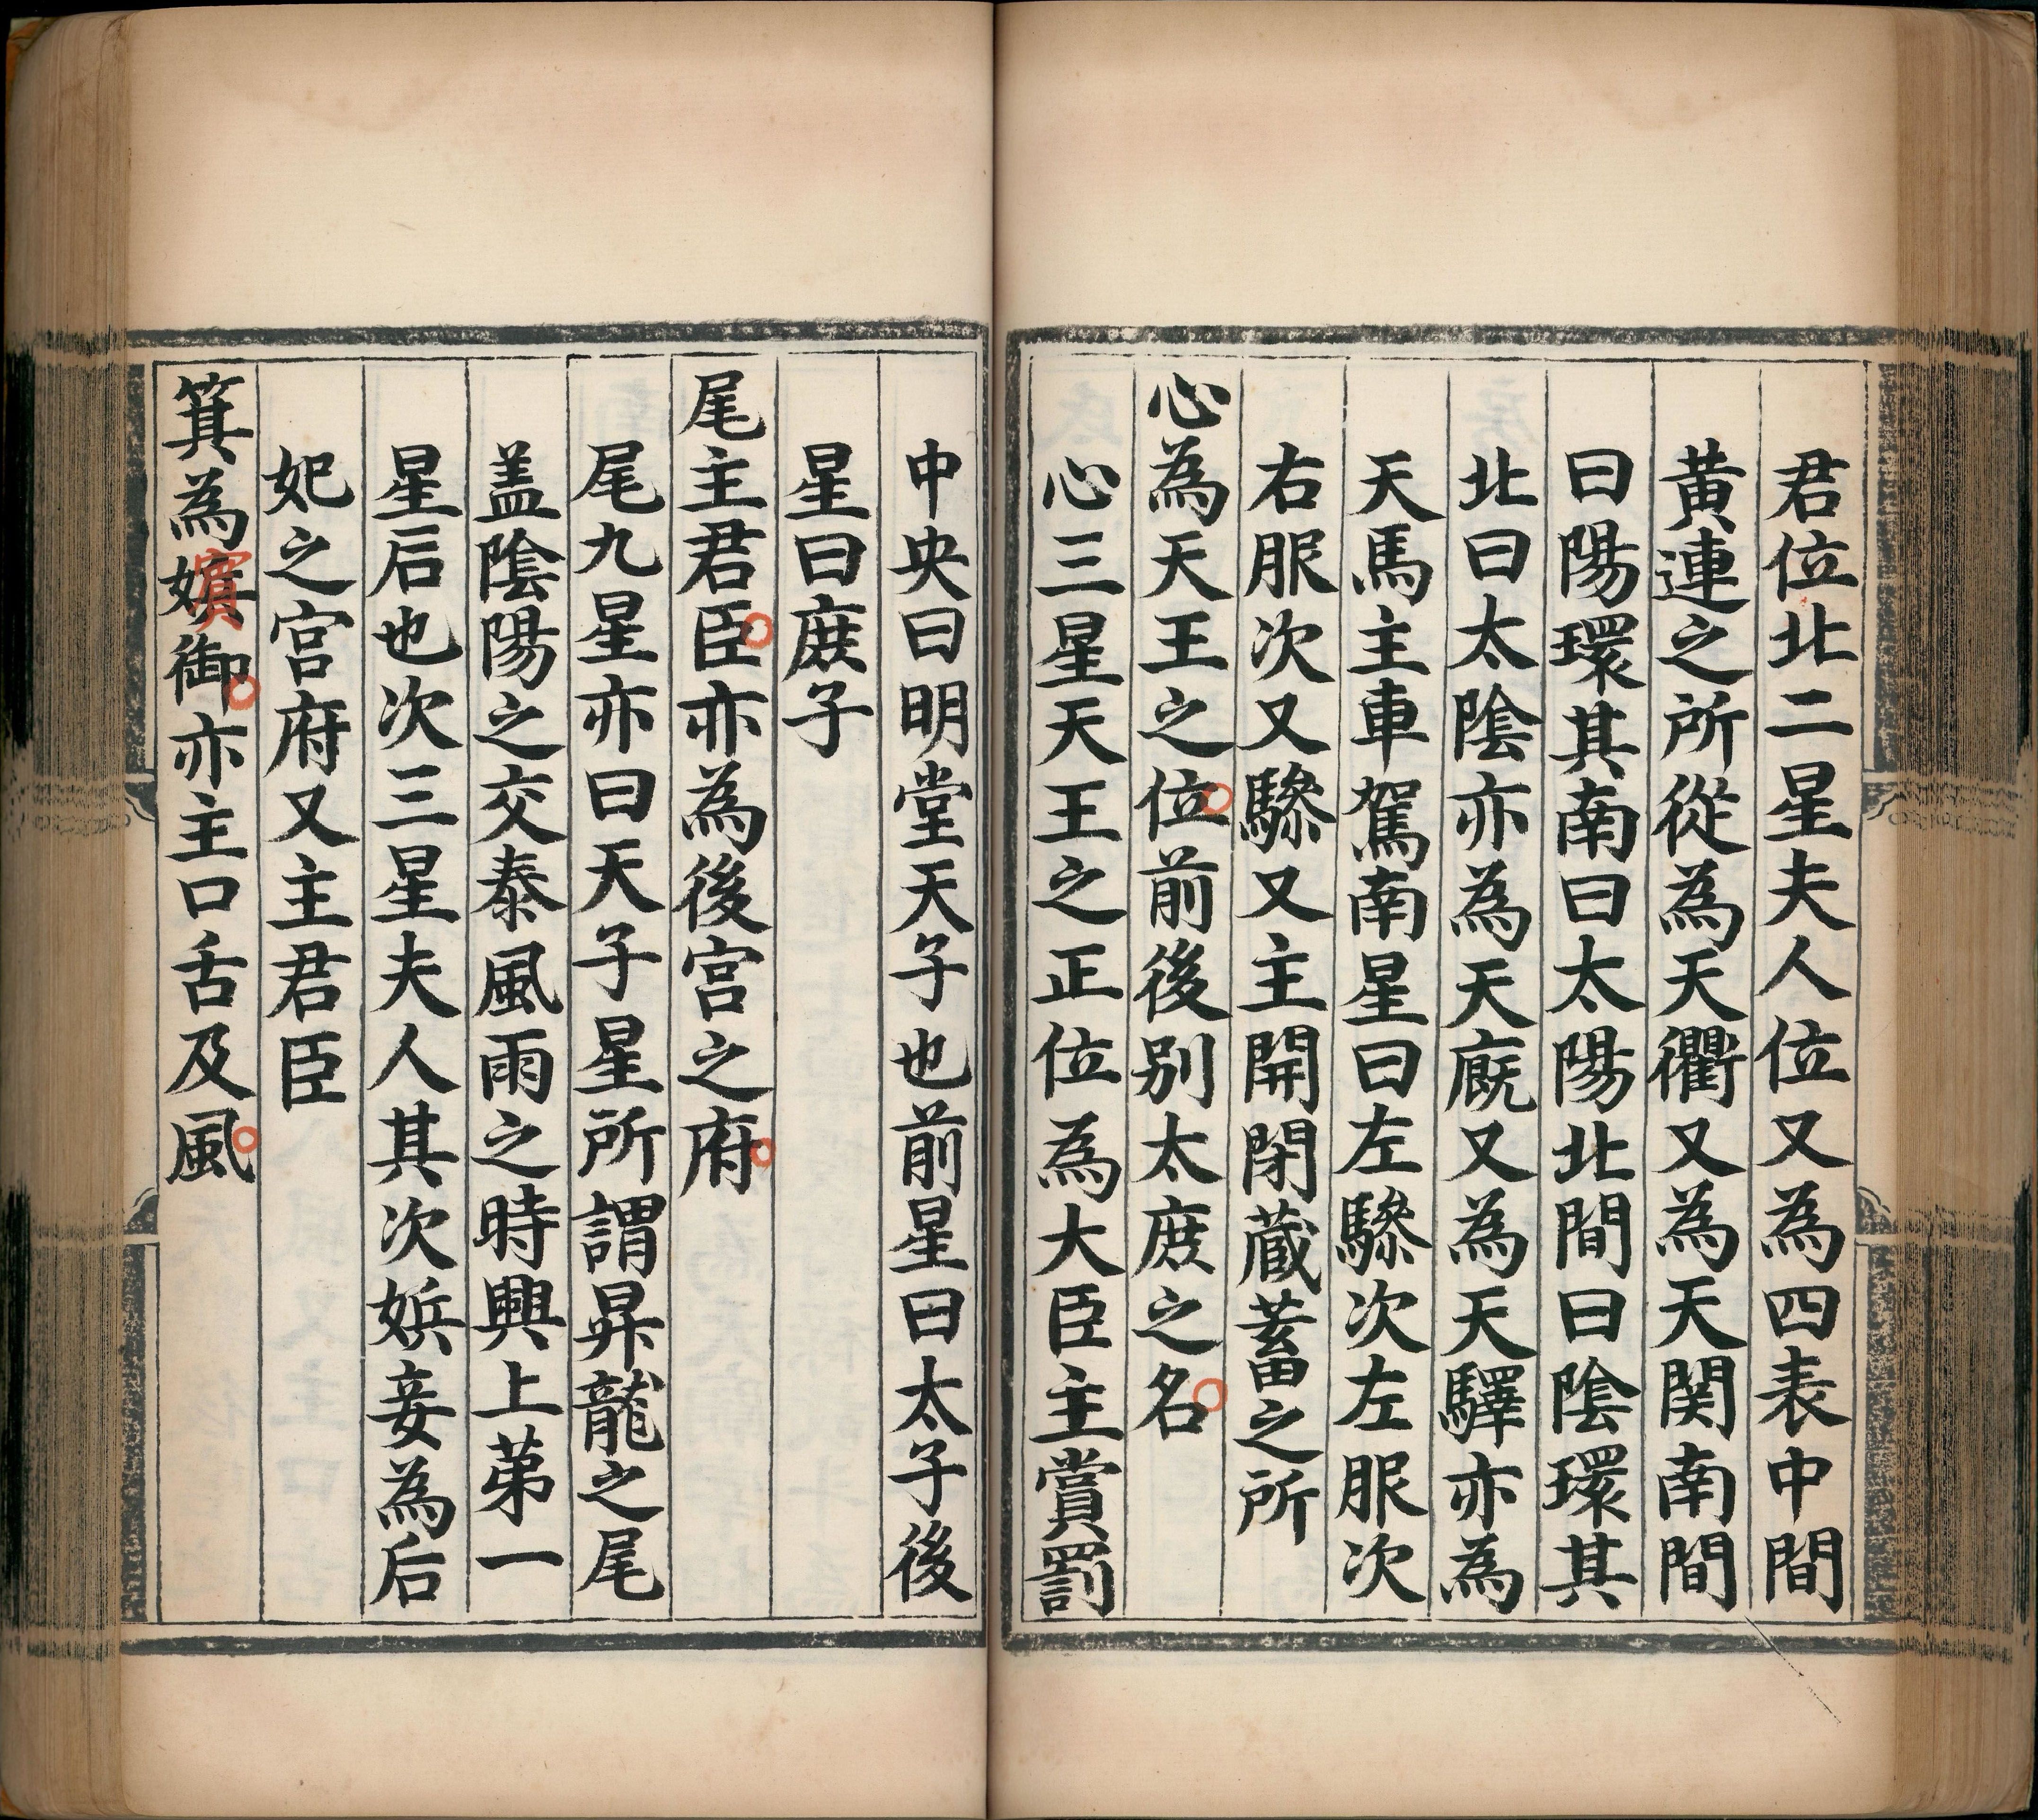 君位北二星夫人位又為四表中間
黄連之所從為天衢又為天関南間
曰陽環其南曰太陽北間曰陰環其
北曰太陰亦為天廐又為天驛亦為
天馬主車駕南星曰左驂次左服次
右服次又驂又主開閉蔵蓄之所
心為天王之位前後別太庶之名
心三星天王之正位為大臣主賞罰
中央曰明堂天子也前星曰太子後
星曰庶子
尾主君臣亦為後宮之府
尾九星亦曰天子星所謂昇龍之尾
盖陰陽之交泰風雨之時興上苐一
星后也次三星夫人其次嬪妾為后
妃之宮府又主君臣
箕為嬪御亦主口舌及風